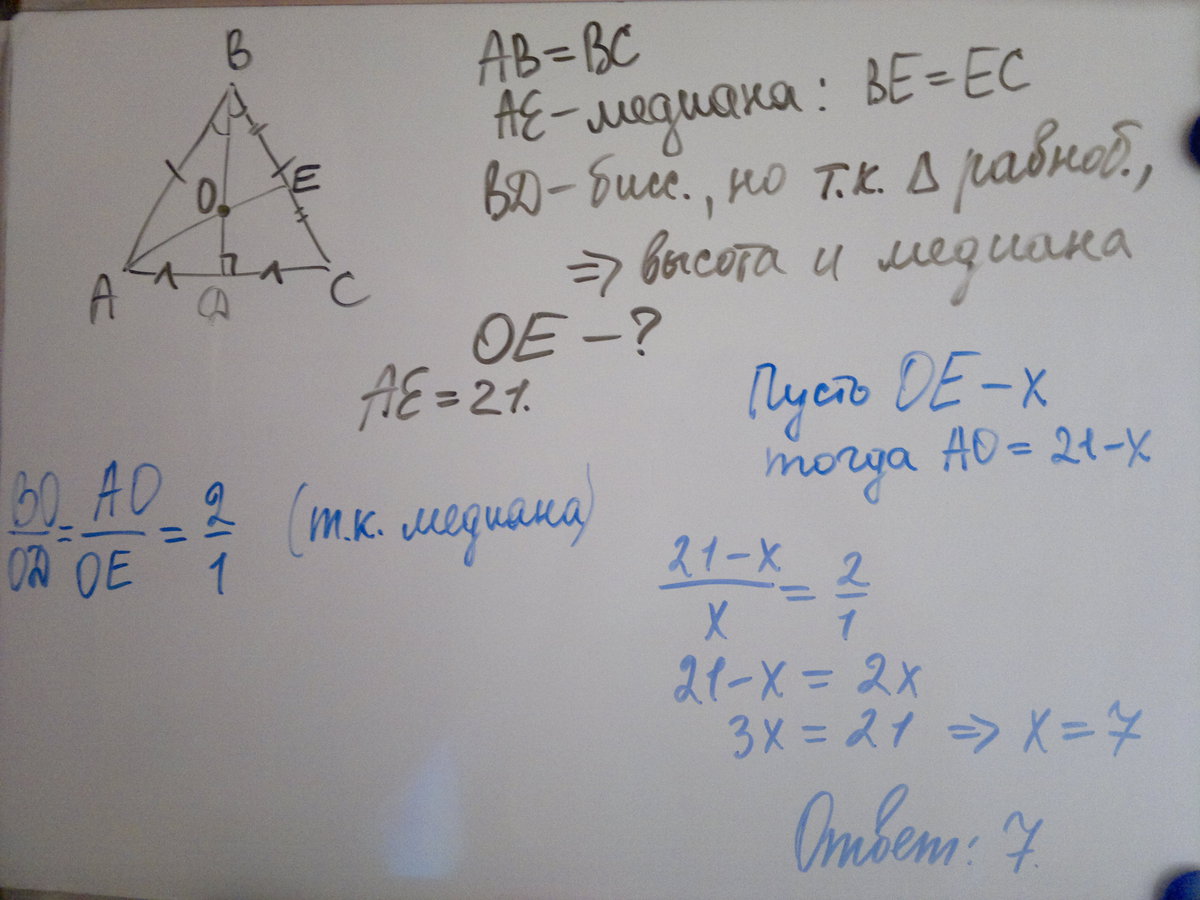 B
O
E
A
D
C
AB = BC
AE - медиана: BE = EC
BD - бисс., но т.к. Δ равноб.,
=> высота и медиана
OE - ?
AE = 21.
Пусть OE - x
тогда AO = 21-x
BO/OD = AO/OE = 2/1 (т.к. медиана)
21-x/x = 2/1
21-x = 2x
3x = 21 => x = 7
Ответ: 7.